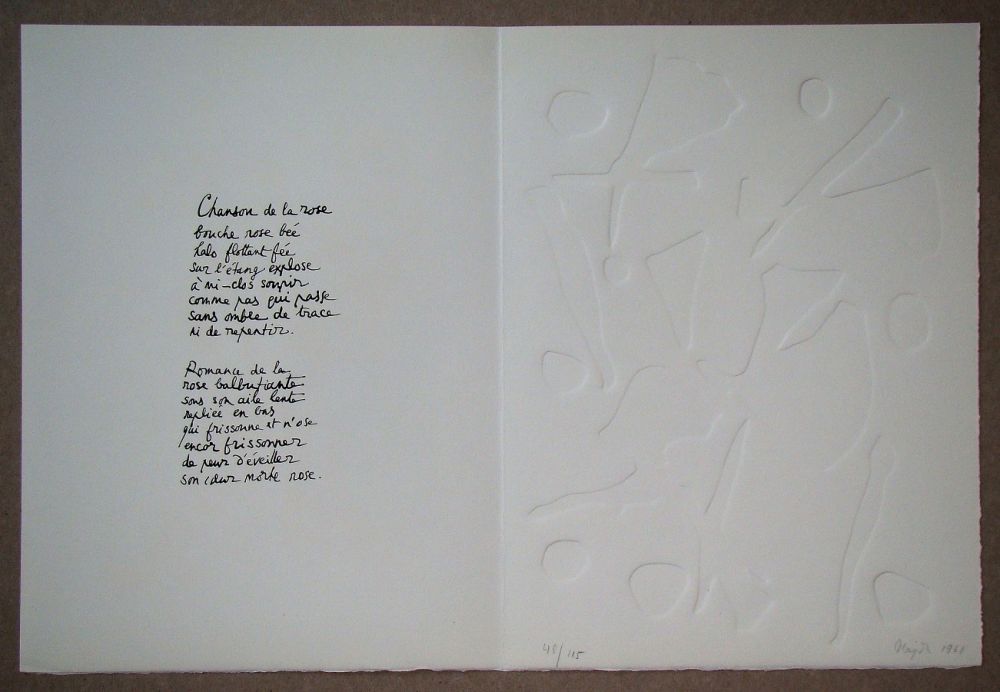 Chanson de la rose
bouche rose bée
halo flottant fée
sur l'étang explose
à mi-clos soupir
comme pas qui passe
sans ombre de trace
ni de repentir.
Romance de la
rose balbutiante
sous son aile lente
repliée en bas
qui frissonne et n'ose
encor frissonner
de peur d'éveiller
son cœur morte rose.
48/115
1961